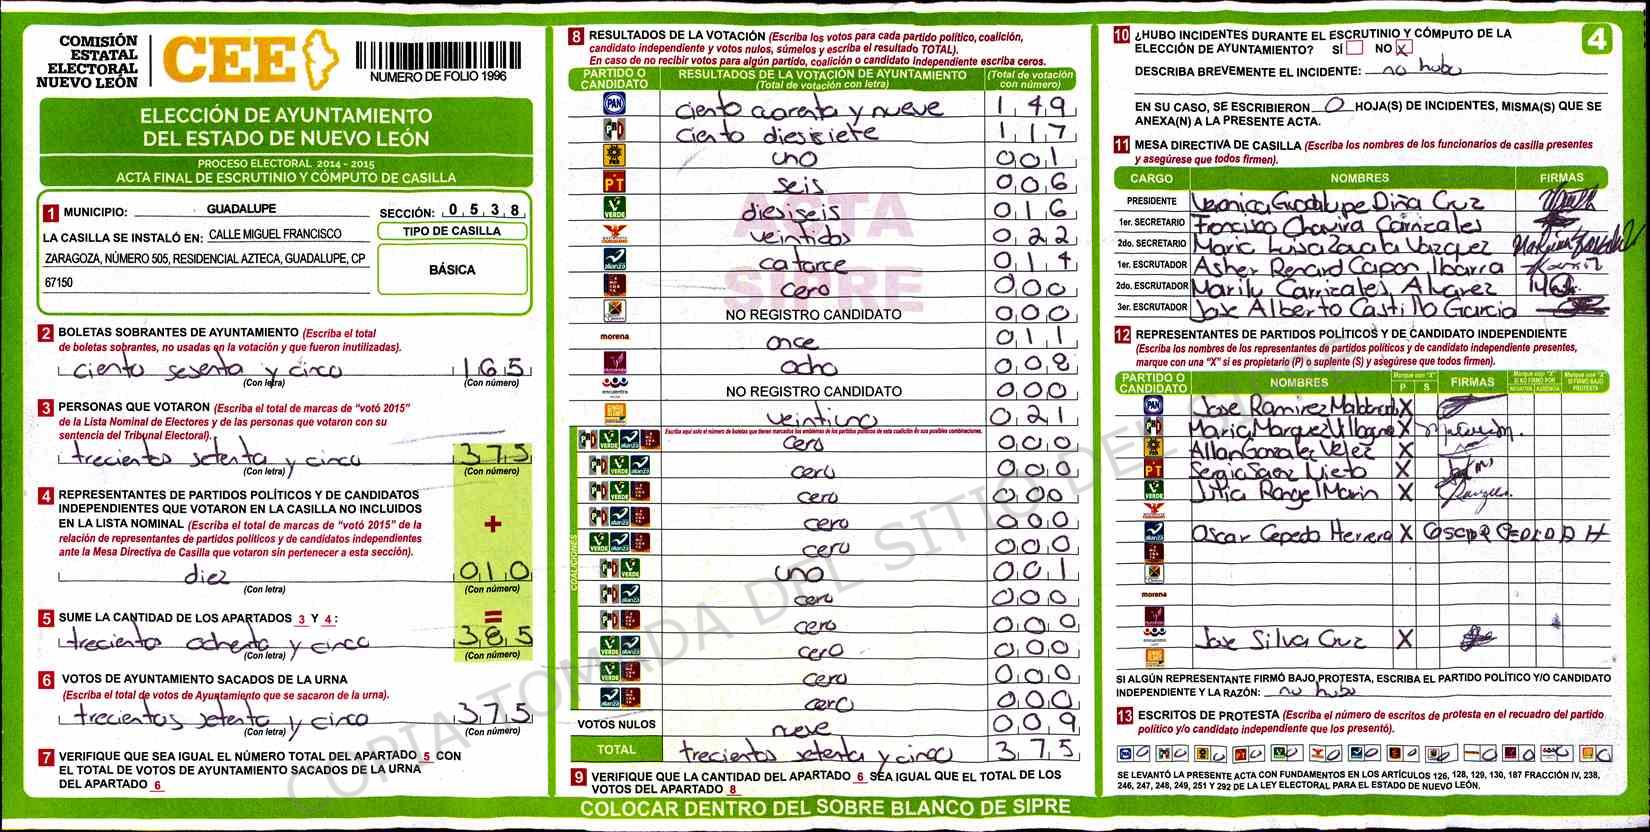 COMISIÓN
ESTATAL
ELECTORAL
NUEVO LEÓN
CEE
NUMERO DE FOLIO 1996
ELECCIÓN DE AYUNTAMIENTO
DEL ESTADO DE NUEVO LEÓN
PROCESO ELECTORAL 2014 - 2015
ACTA FINAL DE ESCRUTINIO Y CÓMPUTO DE CASILLA
1 MUNICIPIO: GUADALUPE SECCIÓN: 0 5 3 8
LA CASILLA SE INSTALÓ EN: CALLE MIGUEL FRANCISCO
ZARAGOZA, NÚMERO 505, RESIDENCIAL AZTECA, GUADALUPE, CP
67150
TIPO DE CASILLA
BÁSICA
2 BOLETAS SOBRANTES DE AYUNTAMIENTO (Escriba el total
de boletas sobrantes, no usadas en la votación y que fueron inutilizadas).
ciento sesenta y cinco 1 6 5
(Con letra) (Con número)
3 PERSONAS QUE VOTARON (Escriba el total de marcas de "votó 2015"
de la Lista Nominal de Electores y de las personas que votaron con su
sentencia del Tribunal Electoral).
trecientos setenta y cinco 3 7 5
(Con letra) (Con número)
4 REPRESENTANTES DE PARTIDOS POLÍTICOS Y DE CANDIDATOS
INDEPENDIENTES QUE VOTARON EN LA CASILLA NO INCLUIDOS
EN LA LISTA NOMINAL (Escriba el total de marcas de "votó 2015" de la
relación de representantes de partidos políticos y de candidatos independientes
ante la Mesa Directiva de Casilla que votaron sin pertenecer a esta sección).
+
diez 0 1 0
(Con letra) (Con número)
=
5 SUME LA CANTIDAD DE LOS APARTADOS 3 Y 4:
trecientos ochenta y cinco 3 8 5
(Con letra) (Con número)
6 VOTOS DE AYUNTAMIENTO SACADOS DE LA URNA
(Escriba el total de votos de Ayuntamiento que se sacaron de la urna).
trecientos setenta y cinco 3 7 5
(Con letra) (Con número)
7 VERIFIQUE QUE SEA IGUAL EL NÚMERO TOTAL DEL APARTADO 5 CON
EL TOTAL DE VOTOS DE AYUNTAMIENTO SACADOS DE LA URNA
DEL APARTADO 6
8 RESULTADOS DE LA VOTACIÓN (Escriba los votos para cada partido político, coalición,
candidato independiente y votos nulos, súmelos y escriba el resultado TOTAL).
En caso de no recibir votos para algún partido, coalición o candidato independiente escriba ceros.
PARTIDO O CANDIDATO RESULTADOS DE LA VOTACIÓN DE AYUNTAMIENTO (Total de votación con letra) (Total de votación con número)
PAN ciento cuarenta y nueve 1 4 9
PRD ciento diesisiete 1 1 7
PRD uno 0 0 1
PT seis 0 0 6
VERDE diesiseis 0 1 6
veintidos 0 2 2
alianza catorce 0 1 4
cero 0 0 0
NO REGISTRO CANDIDATO 0 0 0
morena once 0 1 1
ocho 0 0 8
encuentro NO REGISTRO CANDIDATO 0 0 0
veintiuno 0 2 1
Escriba aquí solo el número de boletas que tienen marcados los emblemas de los partidos políticos de esta coalición en sus posibles combinaciones.
COALICIONES
VERDE alianza cero 0 0 0
VERDE alianza cero 0 0 0
VERDE cero 0 0 0
alianza cero 0 0 0
VERDE alianza cero 0 0 0
VERDE uno 0 0 1
alianza cero 0 0 0
cero 0 0 0
VERDE alianza cero 0 0 0
VERDE cero 0 0 0
alianza cero 0 0 0
VOTOS NULOS nueve 0 0 9
TOTAL trecientos setenta y cinco 3 7 5
9 VERIFIQUE QUE LA CANTIDAD DEL APARTADO 6 SEA IGUAL QUE EL TOTAL DE LOS
VOTOS DEL APARTADO 8
COLOCAR DENTRO DEL SOBRE BLANCO DE SIPRE
ACTA
SIPRE
COPIA TOMADA DEL SITIO DEL
4
10 ¿HUBO INCIDENTES DURANTE EL ESCRUTINIO Y CÓMPUTO DE LA
ELECCIÓN DE AYUNTAMIENTO? SÍ NO X
DESCRIBA BREVEMENTE EL INCIDENTE: no hubo
EN SU CASO, SE ESCRIBIERON 0 HOJA(S) DE INCIDENTES, MISMA(S) QUE SE
ANEXA(N) A LA PRESENTE ACTA.
11 MESA DIRECTIVA DE CASILLA (Escriba los nombres de los funcionarios de casilla presentes
y asegúrese que todos firmen).
CARGO NOMBRES FIRMAS
PRESIDENTE Veronica Guadalupe Diña Cruz
1er. SECRETARIO Francisco Chavira Carrizales
2do. SECRETARIO Maria Luisa Zavala Vazquez
1er. ESCRUTADOR Asher Renard Capon Ibarra
2do. ESCRUTADOR Marilu Carrizales Alvarez
3er. ESCRUTADOR Jose Alberto Castillo Garcia
12 REPRESENTANTES DE PARTIDOS POLÍTICOS Y DE CANDIDATO INDEPENDIENTE
(Escriba los nombres de los representantes de partidos políticos y de candidato independiente presentes,
marque con una "X" si es propietario (P) o suplente (S) y asegúrese que todos firmen).
PARTIDO O CANDIDATO NOMBRES Marque con "X" P S FIRMAS
PAN Jose Ramirez Maldonado X
Maria Marquez Villagrana X
Allan Gonzalez Velez X
PT Sergio Saenz Nieto X
VERDE Julia Rangel Marin X
alianza Oscar Cepedo Herrera X
morena
encuentro Jose Silva Cruz X
SI ALGÚN REPRESENTANTE FIRMÓ BAJO PROTESTA, ESCRIBA EL PARTIDO POLÍTICO Y/O CANDIDATO
INDEPENDIENTE Y LA RAZÓN: no hubo
13 ESCRITOS DE PROTESTA (Escriba el número de escritos de protesta en el recuadro del partido
político y/o candidato independiente que los presentó).
0 0 0 0 0 0 0 0 0 0 0 0 0
SE LEVANTÓ LA PRESENTE ACTA CON FUNDAMENTOS EN LOS ARTÍCULOS 126, 128, 129, 130, 187 FRACCIÓN IV, 238,
246, 247, 248, 249, 251 Y 292 DE LA LEY ELECTORAL PARA EL ESTADO DE NUEVO LEÓN.